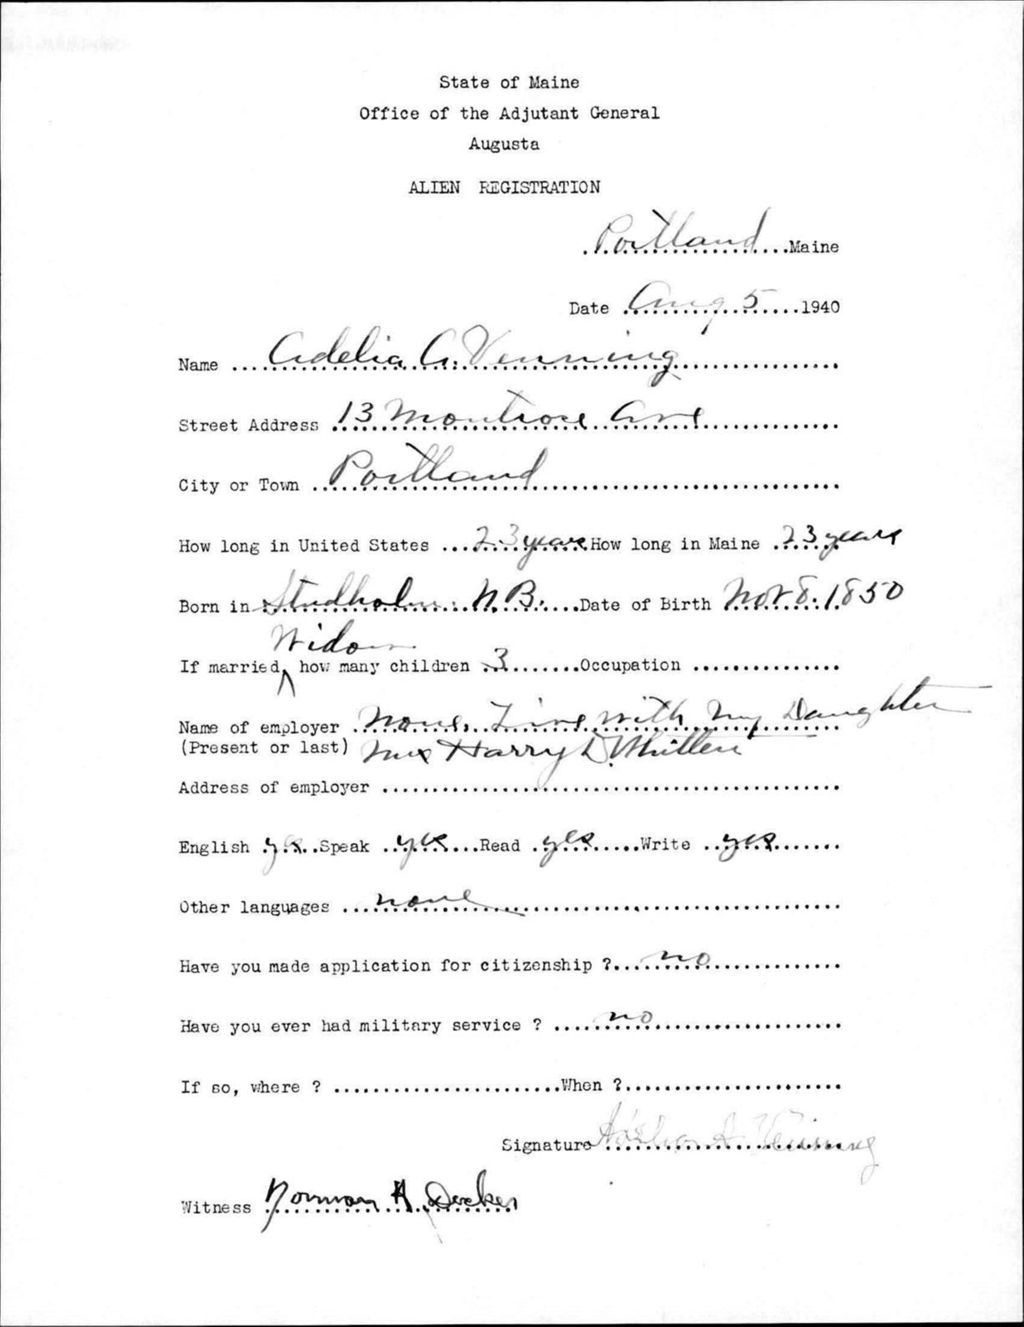 State of Maine
Office of the Adjutant General
Augusta
ALIEN REGISTRATION
Portland Maine
Date Aug 5 1940
Name Adelia A. Venning
Street Address 13 Montrose Ave
City or Town Portland
How long in United States 23 years How long in Maine 23 years
Born in Studholm N.B. Date of Birth Nov 8. 1850
Widow
If married, how many children 3 Occupation
Name of employer None, Live with my Daughter
(Present or last) Mrs Harry D. Whitten
Address of employer
English yes Speak yes Read yes Write yes
Other languages none
Have you made application for citizenship ? no
Have you ever had military service ? no
If so, where ? When ?
Signature Adelia A. Venning
Witness Norman A. Decker